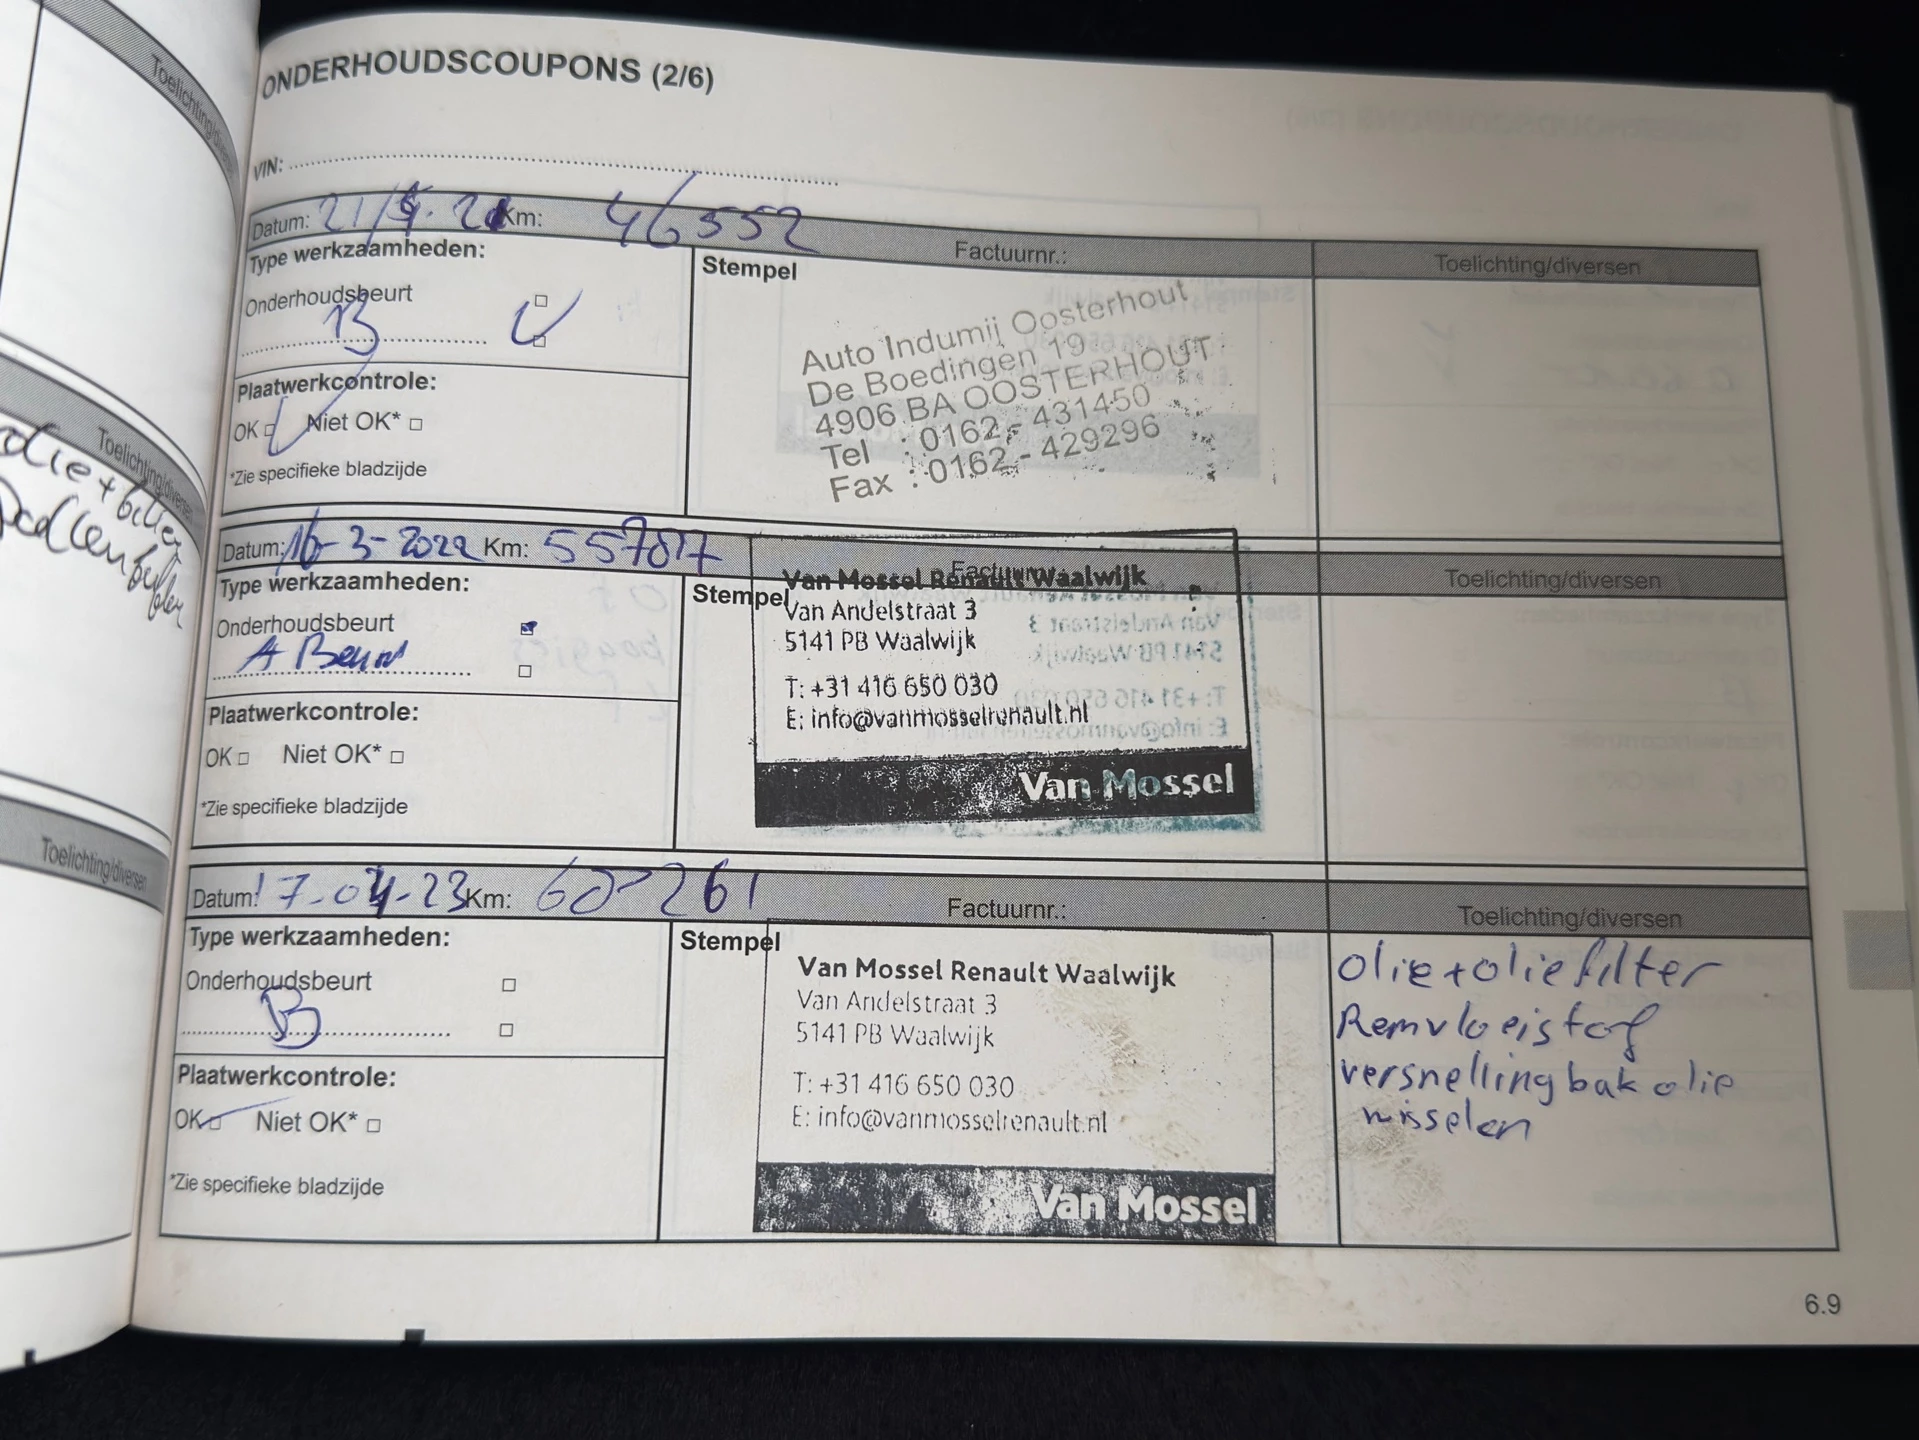 ONDERHOUDSCOUPONS (2/6)
VIN:
Datum: 21/ Km: 46552
Factuurnr.:
Toelichting/diversen
Type werkzaamheden:
Onderhoudsbeurt
B
Plaatwerkcontrole:
OK Niet OK*
*Zie specifieke bladzijde
Stempel
Auto Indumij Oosterhout
De Boedingen 19
4906 BA OOSTERHOUT
Tel : 0162 - 431450
Fax : 0162 - 429296
Datum: 16-3-2022 Km:
Factuurnr.:
Toelichting/diversen
Type werkzaamheden:
Onderhoudsbeurt
A Beurt
Plaatwerkcontrole:
OK Niet OK*
*Zie specifieke bladzijde
Stempel
Van Mossel Renault Waalwijk
Van Andelstraat 3
5141 PB Waalwijk
T: +31 416 650 030
E: info@vanmosselrenault.nl
Van Mossel
Datum: 17-04-23 Km: 60-261
Factuurnr.:
Toelichting/diversen
Type werkzaamheden:
Onderhoudsbeurt
B
Plaatwerkcontrole:
OK Niet OK*
*Zie specifieke bladzijde
Stempel
Van Mossel Renault Waalwijk
Van Andelstraat 3
5141 PB Waalwijk
T: +31 416 650 030
E: info@vanmosselrenault.nl
Van Mossel
olie+oliefilter
Remvloeistof
versnellingbak olie
wisselen
6.9
Toelichting/diversen
Toelichting/diversen
Toelichting/diversen